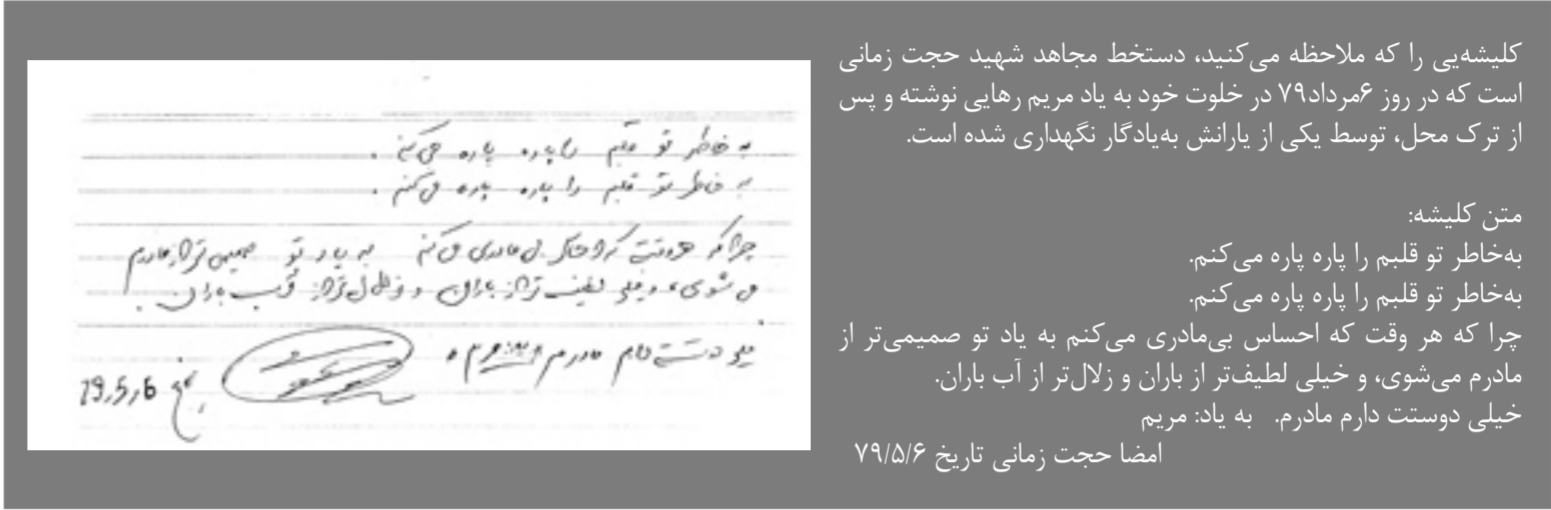 کلیشه‌یی را که ملاحظه می‌کنید، دستخط مجاهد شهید حجت زمانی
است که در روز ۶مرداد۷۹ در خلوت خود به یاد مریم رهایی نوشته و پس
از ترک محل، توسط یکی از یارانش به‌یادگار نگهداری شده است.
متن کلیشه:
به‌خاطر تو قلبم را پاره پاره می‌کنم.
به‌خاطر تو قلبم را پاره پاره می‌کنم.
چرا که هر وقت که احساس بی‌مادری می‌کنم به یاد تو صمیمی‌تر از
مادرم می‌شوی، و خیلی لطیف‌تر از باران و زلال‌تر از آب باران.
خیلی دوستت دارم مادرم. به یاد: مریم
امضا حجت زمانی تاریخ ۷۹/۵/۶
به خاطر تو قلبم را پاره پاره می کنم .
به خاطر تو قلبم را پاره پاره می کنم .
چرا که هر وقت که احساس بی مادری می کنم به یاد تو صمیمی تر از مادرم
می شوی، و خیلی لطیف تر از باران و زلال تر از آب باران .
خیلی دوستت دارم مادرم به یاد: مریم
79,5,6